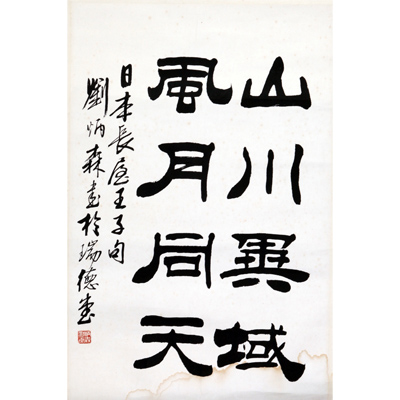 山川異域
風月同天
日本長屋王子句
劉炳森書於瑞德堂